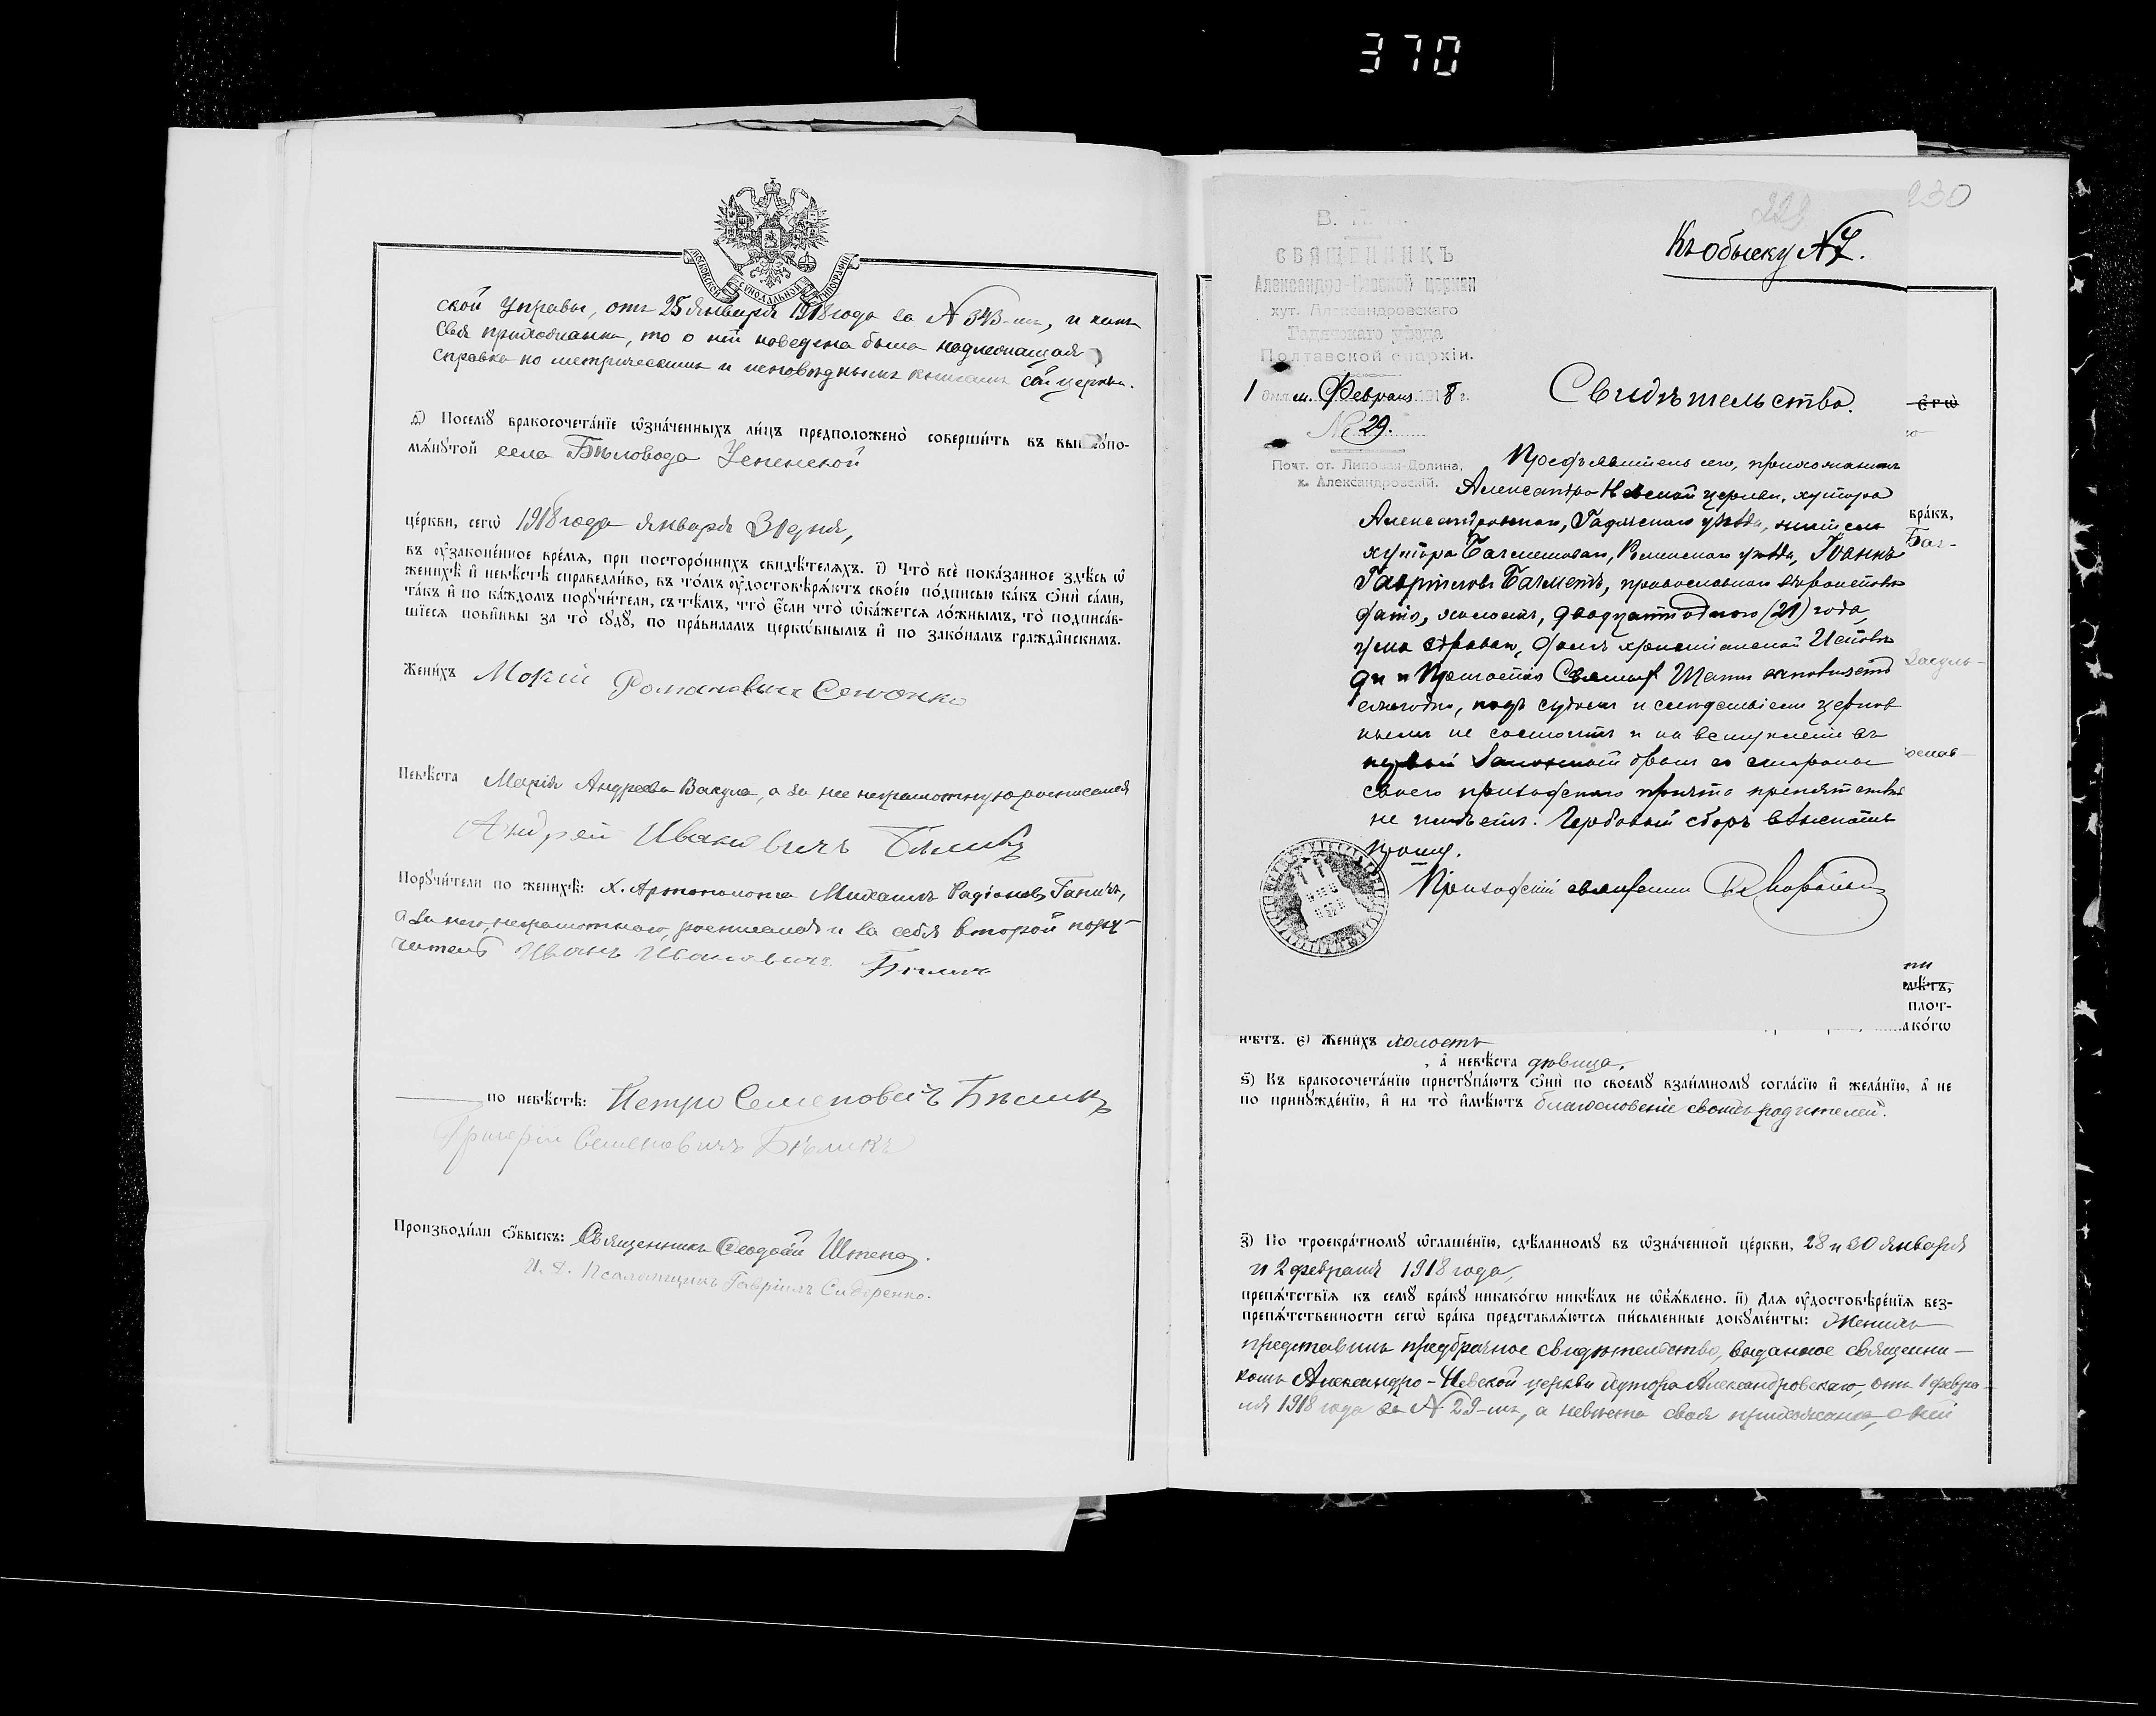 370
МОСКОВСКОЙ СѴНОДАЛЬНОЙ ТИПОГРАФІИ
ской Управы, отъ 25 Января 1918 года за № 343-мъ, и какъ
своя прихожанка, то о ней наведена была надлежащая
справка по метрическимъ и исповѣднымъ книгамъ сей церкви.
ѳ҃) Посемꙋ бракосочета́нїе ѡ҆зна́ченныхъ ли́цъ предположено̀ соверши́ть въ вы ꙋпо-
мѧ́нꙋтой села Бѣловода Успенской
це́ркви, сегѡ̀ 1918 года Января 31 дня,
въ ᲂу҆зако́ненное вре́мѧ, при посторо́ннихъ свидѣ́телѧхъ. і҃) Что̀ всѐ пока́занное здѣ́сь ѡ҆
женихѣ̀ и҆ невѣ́стѣ справедли́во, въ то́мъ ᲂу҆достовѣрѧ́ютъ свое́ю по́дписью ка́къ ѻ҆нѝ са́ми,
та́къ и҆ по ка́ждомъ порꙋчи́тели, съ тѣ́мъ, что̀ є҆́сли что̀ ѡ҆ка́жетсѧ ло́жнымъ, то̀ подписа́в-
шїесѧ пови́нны за то̀ сꙋдꙋ̀, по пра́виламъ церко́внымъ и҆ по зако́намъ гражда́нскимъ.
Жени́хъ Мокій Романовичъ Сенонко
Невѣ́ста Марія Андреева Вакула, а за нее неграмотную росписался
Андрей Ивановичъ Бѣликъ
Порꙋчи́тели по женихѣ̀: х. Артополота Михаилъ Радіоновъ Ганичъ,
а за него, неграмотнаго, росписался и за себя второй пору-
читель Иванъ Ивановичъ Бѣликъ
по невѣ́стѣ: Петро Семеновичъ Бѣликъ
Григорій Семеновичъ Бѣликъ
Производи́ли ѻ҆́быскъ: Священникъ Феодосій Штепа.
И. д. Псаломщика Гавріилъ Сидоренко.
230
229
Къ обыску № 7.
В. П. И.
СВЯЩЕННИКЪ
Александро-Невской церкви
хут. Александровскаго
Гадячскаго уѣзда
Полтавской епархіи.
1 дня м. Февраля 1918 г.
№ 29.
Почт. от. Липовая-Долина,
х. Александровскій.
Свидѣтельство.
Предъявитель сего, прихожанинъ
Александро Невской церкви, хутора
Александровскаго, Гадячскаго уѣзда, житель
хутора Багметоваго, Роменскаго уѣзда, Іоаннъ
Гавріиловъ Багметъ, православнаго вѣроисповѣ
данія, холостъ, двадцати одного (21) года,
ума здраваго, долгъ христіанской Исповѣ
ди и Причастія Святыхъ Таинъ исполняетъ
ежегодно, подъ судомъ и слѣдствіемъ церков
нымъ не состоитъ и на вступленіе въ
первый законный бракъ со стороны
своего приходскаго причта препятствій
не имѣетъ. Гербовый сборъ взыскать
прошу.
Приходскій священникъ
є҆гѡ̀
бра́къ,
Баг-
Вакуль-
ослав-
ни
мѣ́тъ,
плот-
ако́гѡ
нѣ́тъ. є҃) Жени́хъ холостъ
, а҆ невѣ́ста дѣвица,
ѕ҃) Къ бракосочета́нїю пристꙋпа́ютъ ѻ҆нѝ по своемꙋ̀ взаи́мномꙋ согла́сїю и҆ жела́нїю, а҆ не
по принꙋжде́нїю, и҆ на то̀ и҆мѣ́ютъ благословеніе своихъ родителей.
з҃) По троекра́тномꙋ ѡ҆глаше́нїю, сдѣ́ланномꙋ въ ѡ҆зна́ченной це́ркви, 28 и 30 Января
и 2 февраля 1918 года,
препѧ́тствїѧ къ семꙋ̀ бра́кꙋ никако́гѡ никѣ́мъ не ѡ҆б̾ѧ́влено. и҃) Длѧ ᲂу҆достовѣре́нїѧ без-
препѧ́тственности сегѡ̀ бра́ка представлѧ́ютсѧ пи́сьменные докꙋме́нты: Женихъ
представилъ предбрачное свидѣтельство, выданное священни-
комъ Александро-Невской церкви хутора Александровскаго, отъ 1 февра-
ля 1918 года за № 29-мъ, а невѣста своя прихожанка, о ней